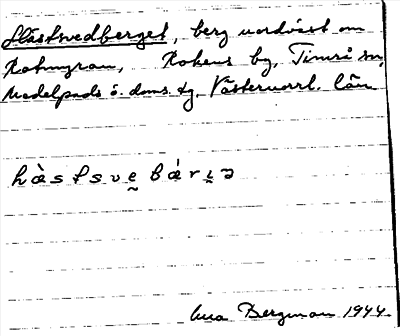 Hästsvedberget, berg nordväst om
Rotmyran, Rokens by, Timrå sn,
Medelpads ö. doms. dg, Västernorrl. län
hàstsve̬bárɩ̬ə
Bergman 1944.